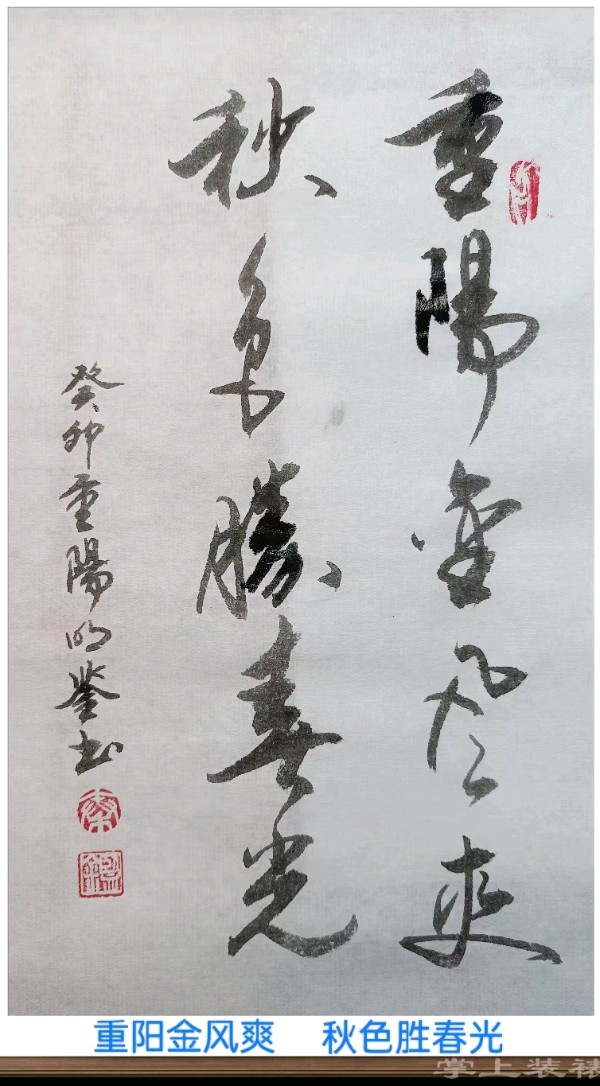 重陽金風爽
秋色勝春光
癸卯重陽明鉴书
重阳金风爽 秋色胜春光
掌上装裱